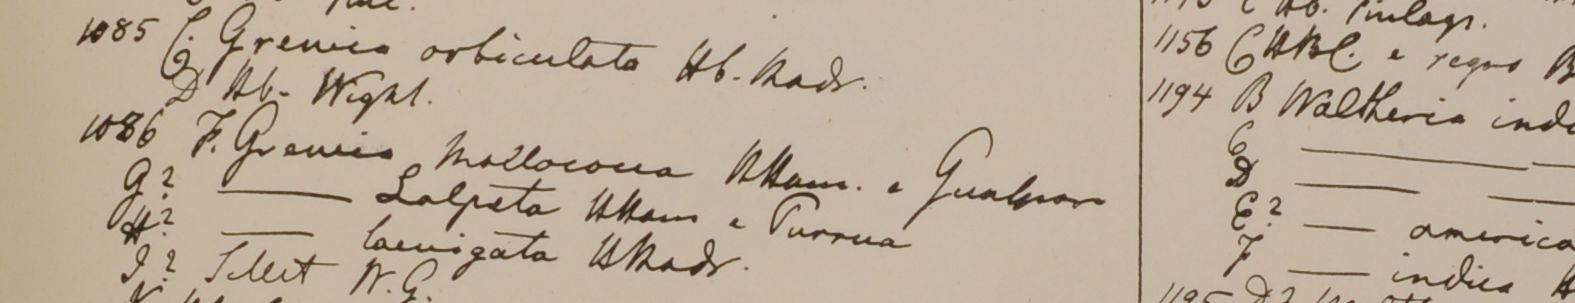 1085 C. Grewia orbiculata Hb. Madr.
D Hb. Wight.
1086 F. Grewia Mallococca HHam. e Gualpara
G? ——— Salpeta HHam e Purrua
H? ——— laevigata HMadr.
I? Sillet W.G.
1156 C HBC. e regno B
1194 B Waltheria indi
C ———
D ———
E? —— america
F —— indica H
1195 D?